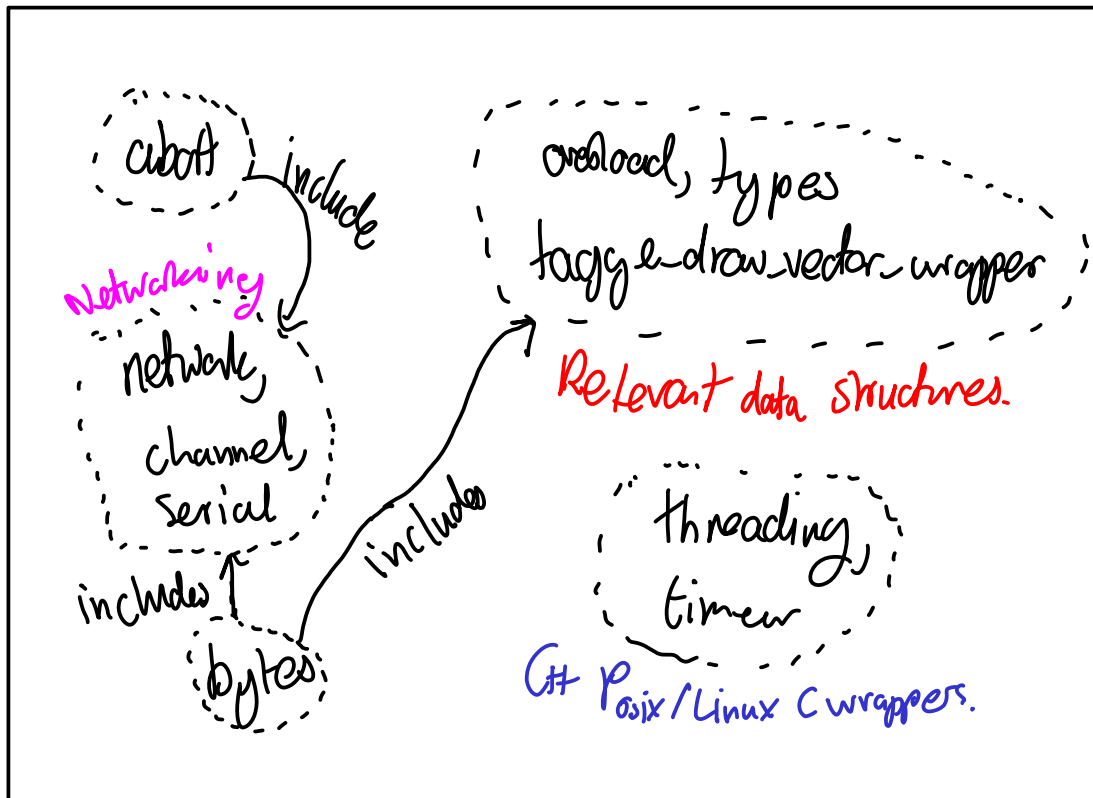 include
Networking
network,
channel,
serial
includes
bytes
includes
overload, types
tagge_draw_vector_wrapper
Relevant data structures.
threading,
timer
C++ Posix/Linux C wrappers.